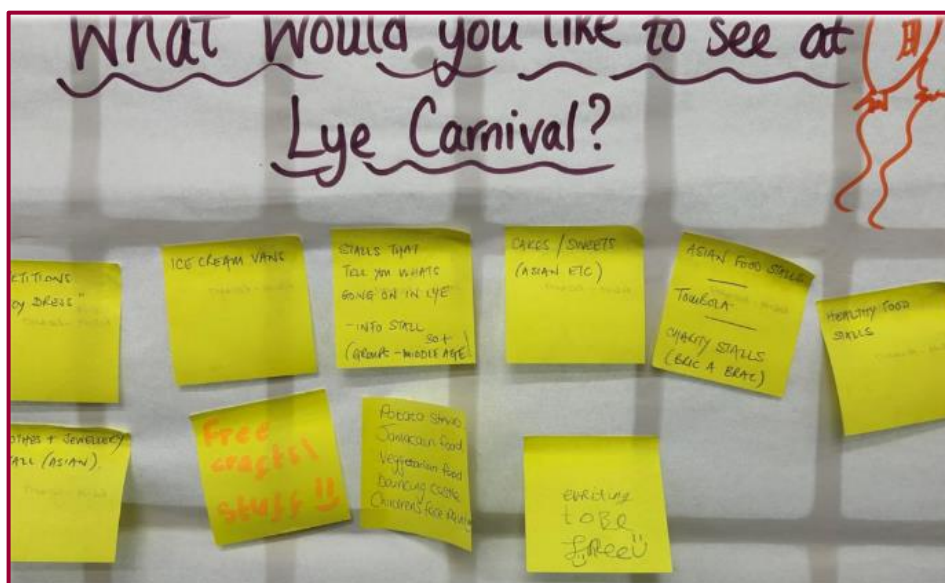 What would you like to see at
Lye Carnival?
ICE CREAM VANS
STALLS THAT
TELL YOU WHATS
GOING ON IN LYE
- INFO STALL
50+
(GROUPS - MIDDLE AGE)
CAKES / SWEETS
(ASIAN ETC)
ASIAN FOOD STALLS
TOMBOLA
CHARITY STALLS
(BRIC A BRAC)
HEALTHY FOOD
STALLS
DRESS"
+ JEWELLERY
(ASIAN)
Free
crafts!
stuff!!
Jamaican food
Vegetarian food
Bouncing Castle
Children's face
to BE
free